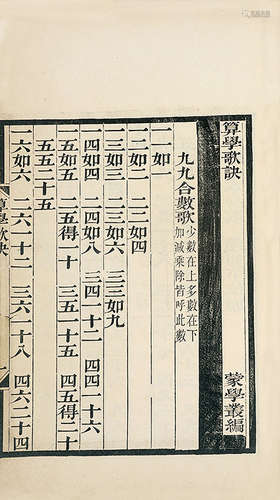 算學歌訣
蒙學叢編
九九合數歌
少數在上多數在下
加減乘除皆呼此數
一一如一
一二如二 二二如四
一三如三 二三如六 三三如九
一四如四 二四如八 三四一十二 四四一十六
一五如五 二五得一十 三五一十五 四五得二十
五五二十五
一六如六 二六一十二 三六一十八 四六二十四
算學歌訣